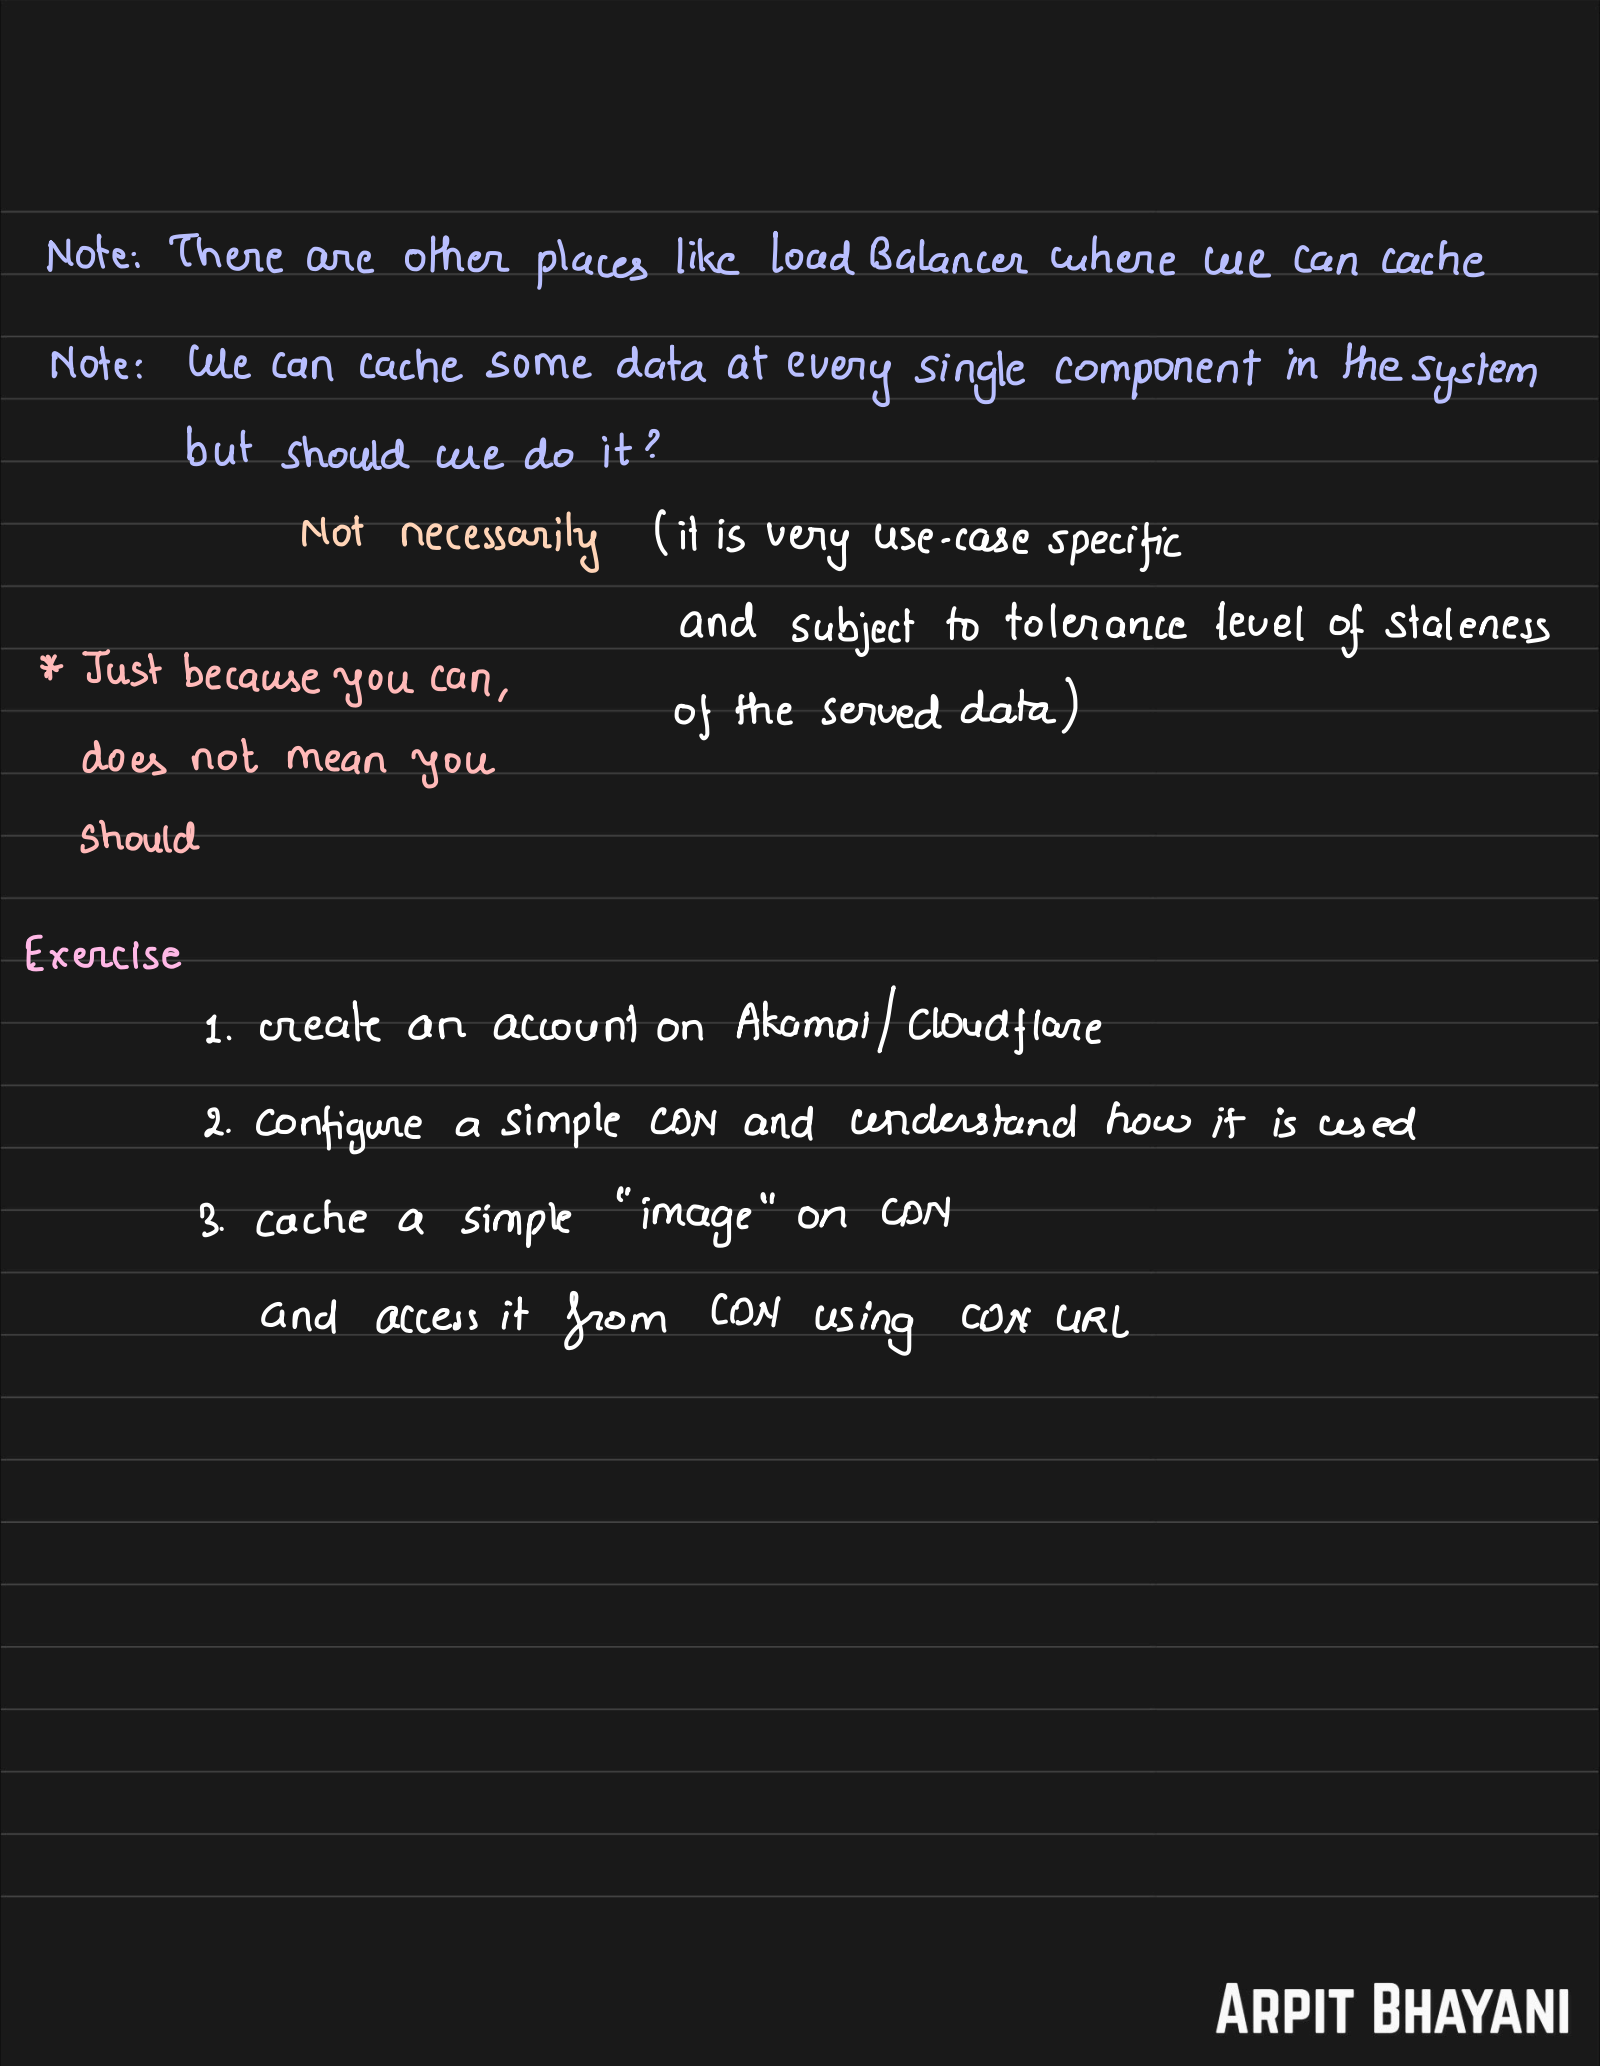 Note: There are other places like load Balancer where we can cache
Note: We can cache some data at every single component in the system
but should we do it?
Not necessarily (it is very use-case specific
and subject to tolerance level of staleness
of the served data)
* Just because you can,
does not mean you
should
Exercise
1. create an account on Akamai/Cloudflare
2. configure a simple CDN and understand how it is used
3. cache a simple "image" on CDN
and access it from CDN using CDN URL
ARPIT BHAYANI